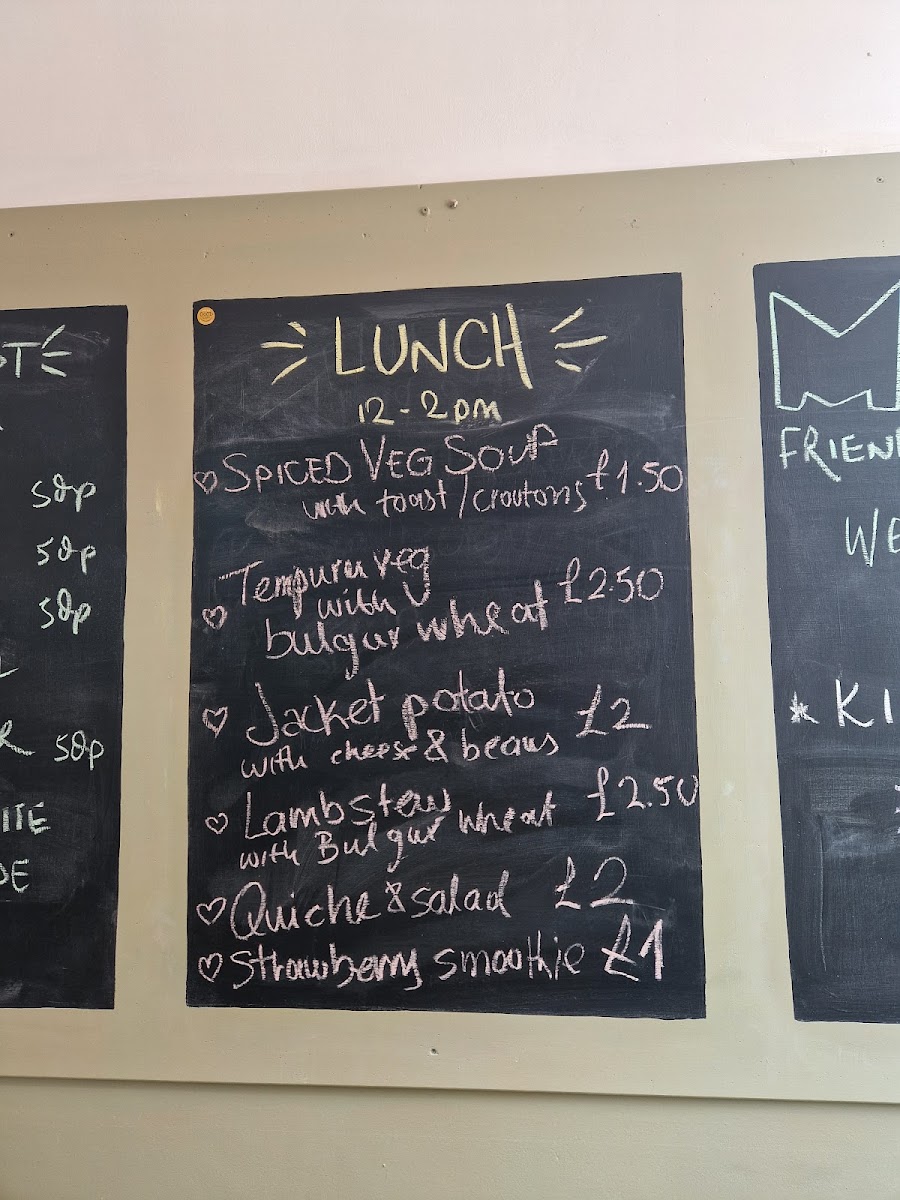 LUNCH
12 - 2pm
SPICED VEG SOUP
with toast / croutons £1.50
Tempura veg
with
bulgur wheat £2.50
Jacket potato
with cheese & beans £2
Lamb stew
with Bulgur wheat £2.50
Quiche & salad £2
Strawberry smoothie £1
50p
50p
50p
50p
FRIEN
WE
* KI